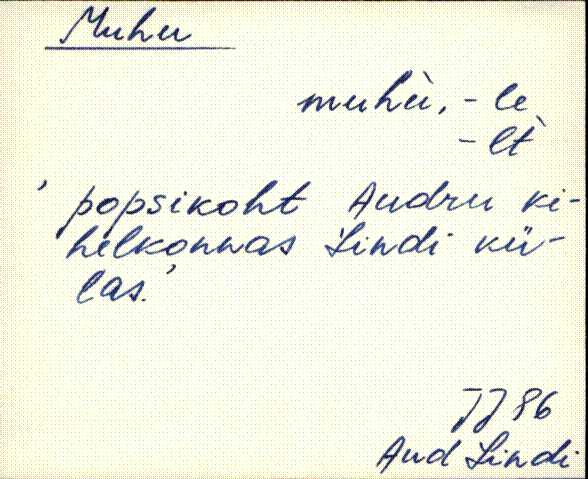 Muhu
muhù, -le
-lt̀
'popsikoht Audru ki-
helkonnas Lindi kü-
las.'
JJ 86
Aud Lindi